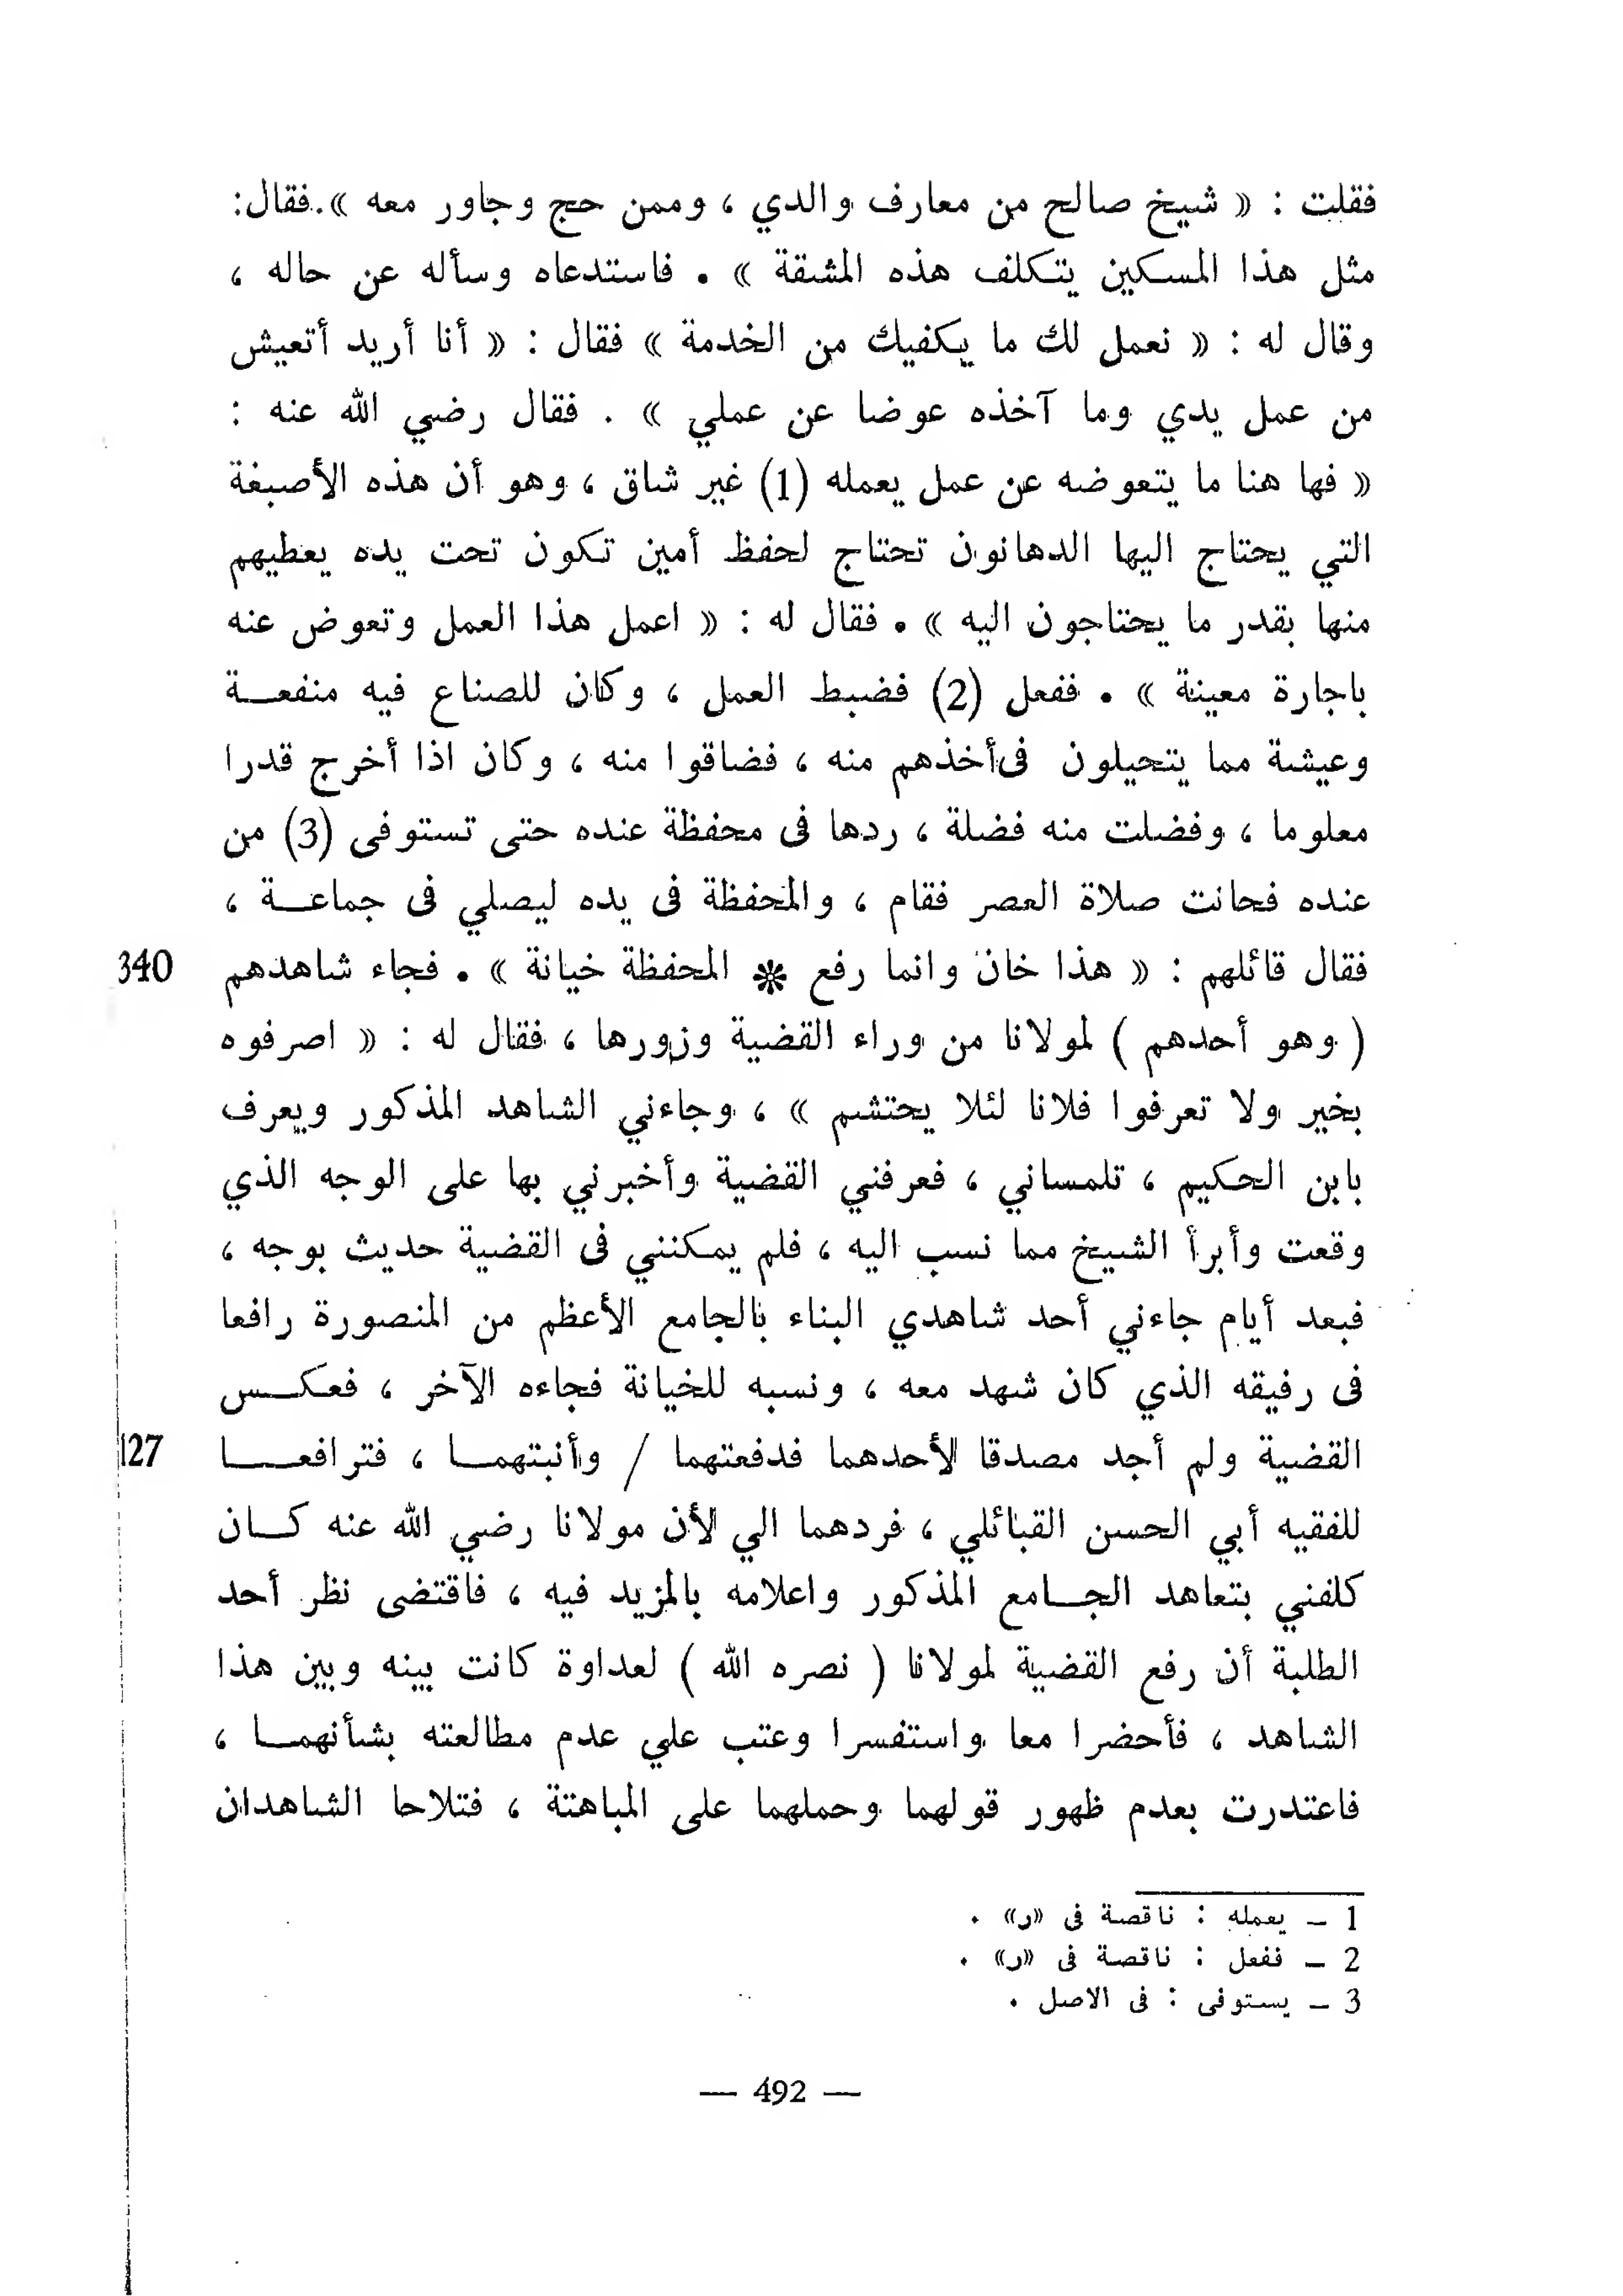 فقلت : « شيخ صالح من معارف والدي ، وممن حج وجاور معه ».فقال:
مثل هذا المسكين يتكلف هذه المشقة » . فاستدعاه وسأله عن حاله ،
وقال له : « نعمل لك ما يكفيك من الخدمة » فقال : « أنا أريد أتعيش
من عمل يدي وما آخذه عوضا عن عملي » . فقال رضي الله عنه :
« فها هنا ما يتعوضه عن عمل يعمله (1) غير شاق ، وهو أن هذه الأصبغة
التي يحتاج اليها الدهانون تحتاج لحفظ أمين تكون تحت يده يعطيهم
منها بقدر ما يحتاجون اليه » . فقال له : « اعمل هذا العمل وتعوض عنه
باجارة معينة » . ففعل (2) فضبط العمل ، وكان للصناع فيه منفعــة
وعيشة مما يتحيلون فى أخذهم منه ، فضاقوا منه ، وكان اذا أخرج قدرا
معلوما ، وفضلت منه فضلة ، ردها فى محفظة عنده حتى تستوفى (3) من
عنده فحانت صلاة العصر فقام ، والمحفظة فى يده ليصلي فى جماعــة ،
فقال قائلهم : « هذا خان وانما رفع * المحفظة خيانة » . فجاء شاهدهم 340
( وهو أحدهم ) لمولانا من وراء القضية وزورها ، فقال له : « اصرفوه
بخير ولا تعرفوا فلانا لئلا يحتشم » ، وجاءني الشاهد المذكور ويعرف
بابن الحكيم ، تلمساني ، فعرفني القضية وأخبرني بها على الوجه الذي
وقعت وأبرأ الشيخ مما نسب اليه ، فلم يمكنني فى القضية حديث بوجه ،
فبعد أيام جاءني أحد شاهدي البناء بالجامع الأعظم من المنصورة رافعا
فى رفيقه الذي كان شهد معه ، ونسبه للخيانة فجاءه الآخر ، فعكــس
القضية ولم أجد مصدقا لأحدهما فدفعتهما / وأنبتهمــا ، فترافعــا 127
للفقيه أبي الحسن القبائلي ، فردهما الي لأن مولانا رضي الله عنه كــان
كلفني بتعاهد الجــامع المذكور واعلامه بالمزيد فيه ، فاقتضى نظر أحد
الطلبة أن رفع القضية لمولانا ( نصره الله ) لعداوة كانت بينه وبين هذا
الشاهد ، فأحضرا معا واستفسرا وعتب علي عدم مطالعته بشأنهمــا ،
فاعتدرت بعدم ظهور قولهما وحملهما على المباهتة ، فتلاحا الشاهدان
1 ـ يعمله : ناقصة فى «ر» .
2 ـ ففعل : ناقصة فى «ر» .
3 ـ يستوفى : فى الاصل .
— 492 —